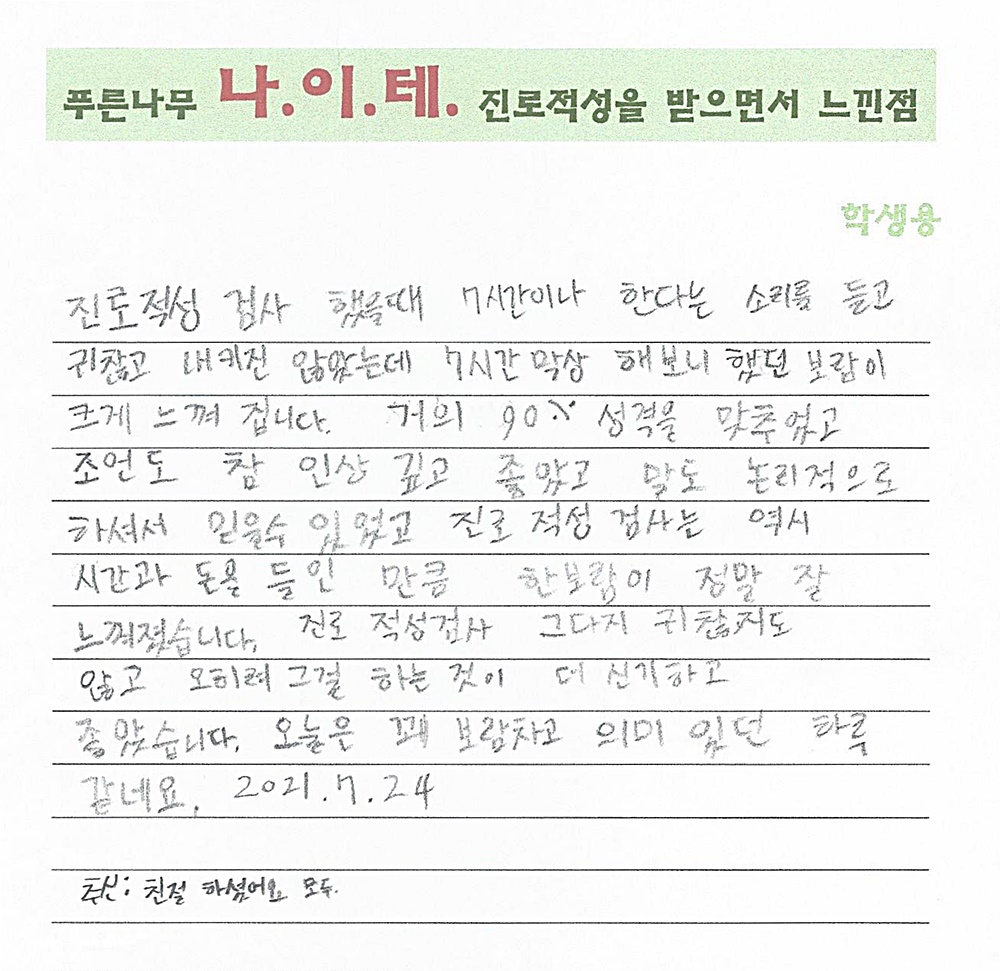 푸른나무 나.이.테. 진로적성을 받으면서 느낀점
학생용
진로적성 검사 했을때 7시간이나 한다는 소리를 듣고
귀찮고 내키진 않았는데 7시간 막상 해보니 했던 보람이
크게 느껴 집니다. 거의 90% 성격을 맞추었고
조언도 참 인상 깊고 좋았고 말도 논리적으로
하셔서 믿을수 있었고 진로 적성 검사는 역시
시간과 돈을 들인 만큼 한보람이 정말 잘
느껴졌습니다. 진로 적성검사 그다지 귀찮지도
않고 오히려 그걸 하는 것이 더 신기하고
좋았습니다. 오늘은 꽤 보람차고 의미 있던 하루
같네요. 2021.7.24
추신: 친절 하셨어요 모두.